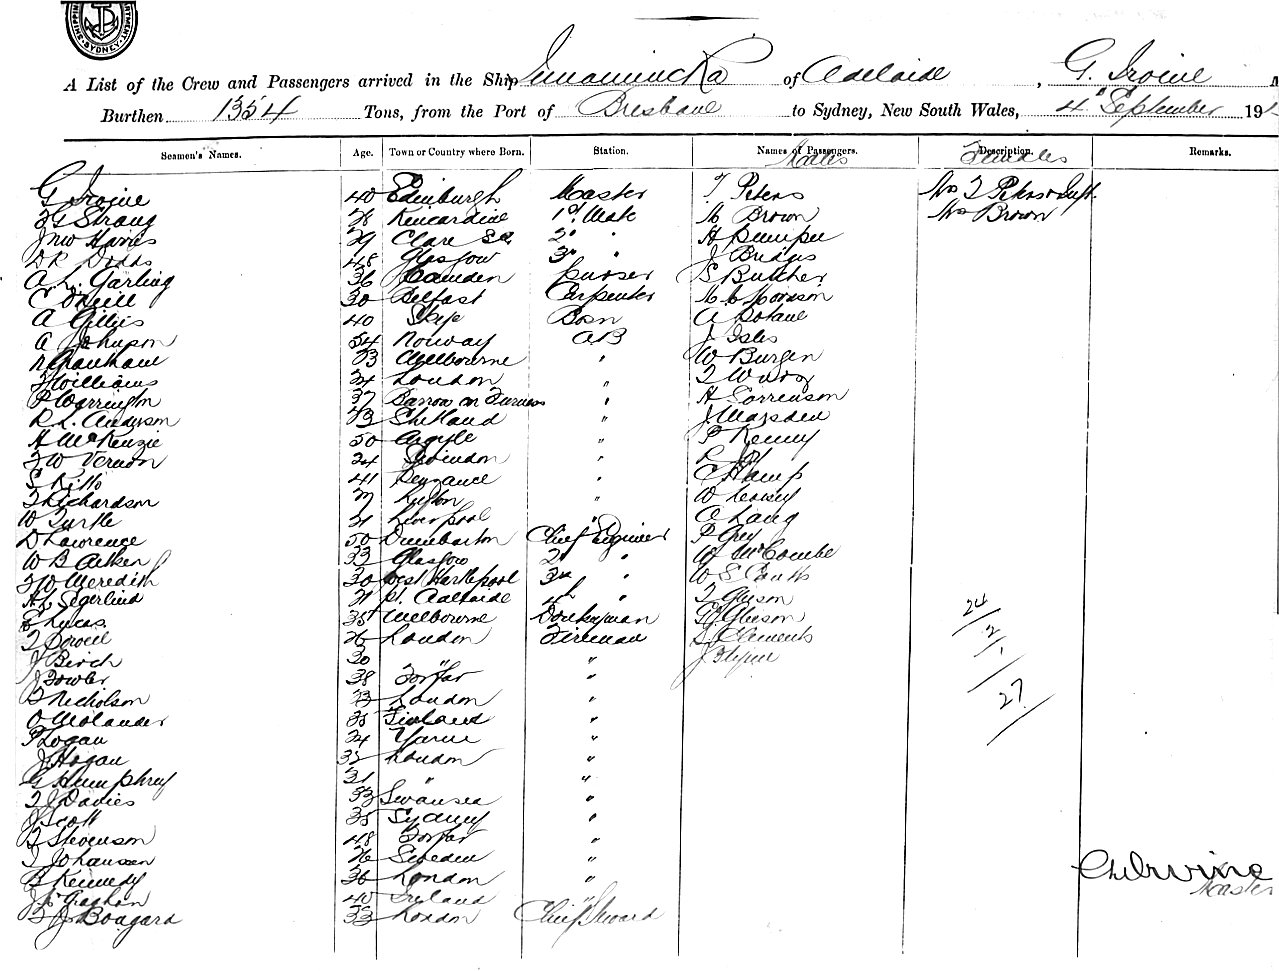 SHIPPING DEPARTMENT SYDNEY
A List of the Crew and Passengers arrived in the Ship Innamincka of Adelaide, G. Irvine
Burthen 1354 Tons, from the Port of Brisbane to Sydney, New South Wales, 4th September 191
Seamen's Names. Age. Town or Country where Born. Station. Names of Passengers. Description. Remarks.
Males Females
G Irvine 40 Edinburgh Master T. Peters Mrs T Peters & Inft.
Strang Kincardine 1st Mate M Brown Mrs Brown
J M W Harris 29 Clare SA 2nd " H
D R Dodds 48 Glasgow 3rd " J Bridges
A L. Garling 36 Camden Purser S Butcher
C O'Neill 30 Belfast Carpenter Morrison
A Gillies 40 Skye Bosn A
A Johnson 54 Norway AB J Isles
23 Melbourne " W Burgen
Williams 24 London "
P Warrington 37 Barrow in Furness " H Sorrenson
R L. Anderson 43 Shetland " J Marsden
H McKenzie 50 Argyle " P Kenny
W Vernon 24 Swindon "
S Kitto 41 Penzance "
T Richardson Luton " W
W Turtle 21 Liverpool " A Lang
D Lawrence 50 Dumbarton Chief Engineer P Grey
W B Aitken 33 Glasgow 2nd " W McCombe
W Meredith 30 West Hartlepool 3rd " W S Coutts
H L Segerlind 21 Pt. Adelaide 4th " T Gleeson
Lucas 35 Melbourne Donkeyman Gleeson
T 26 London Fireman Clements
J Birch 30 " " J
J Fowler 38 Forfar "
Nicholson 23 London "
O Molander 35 Finland "
P Logan 24 Yarm "
J Hogan 32 London "
G Humphrey 21 " "
T J Davies 33 Swansea "
J Scott 35 Sydney "
Stevenson 48 Forfar "
J Johanssen 26 Sweden "
B Kennedy 36 London "
40 Ireland "
J Boagard 33 London Chief Steward
24/2/27
Irvine
Master